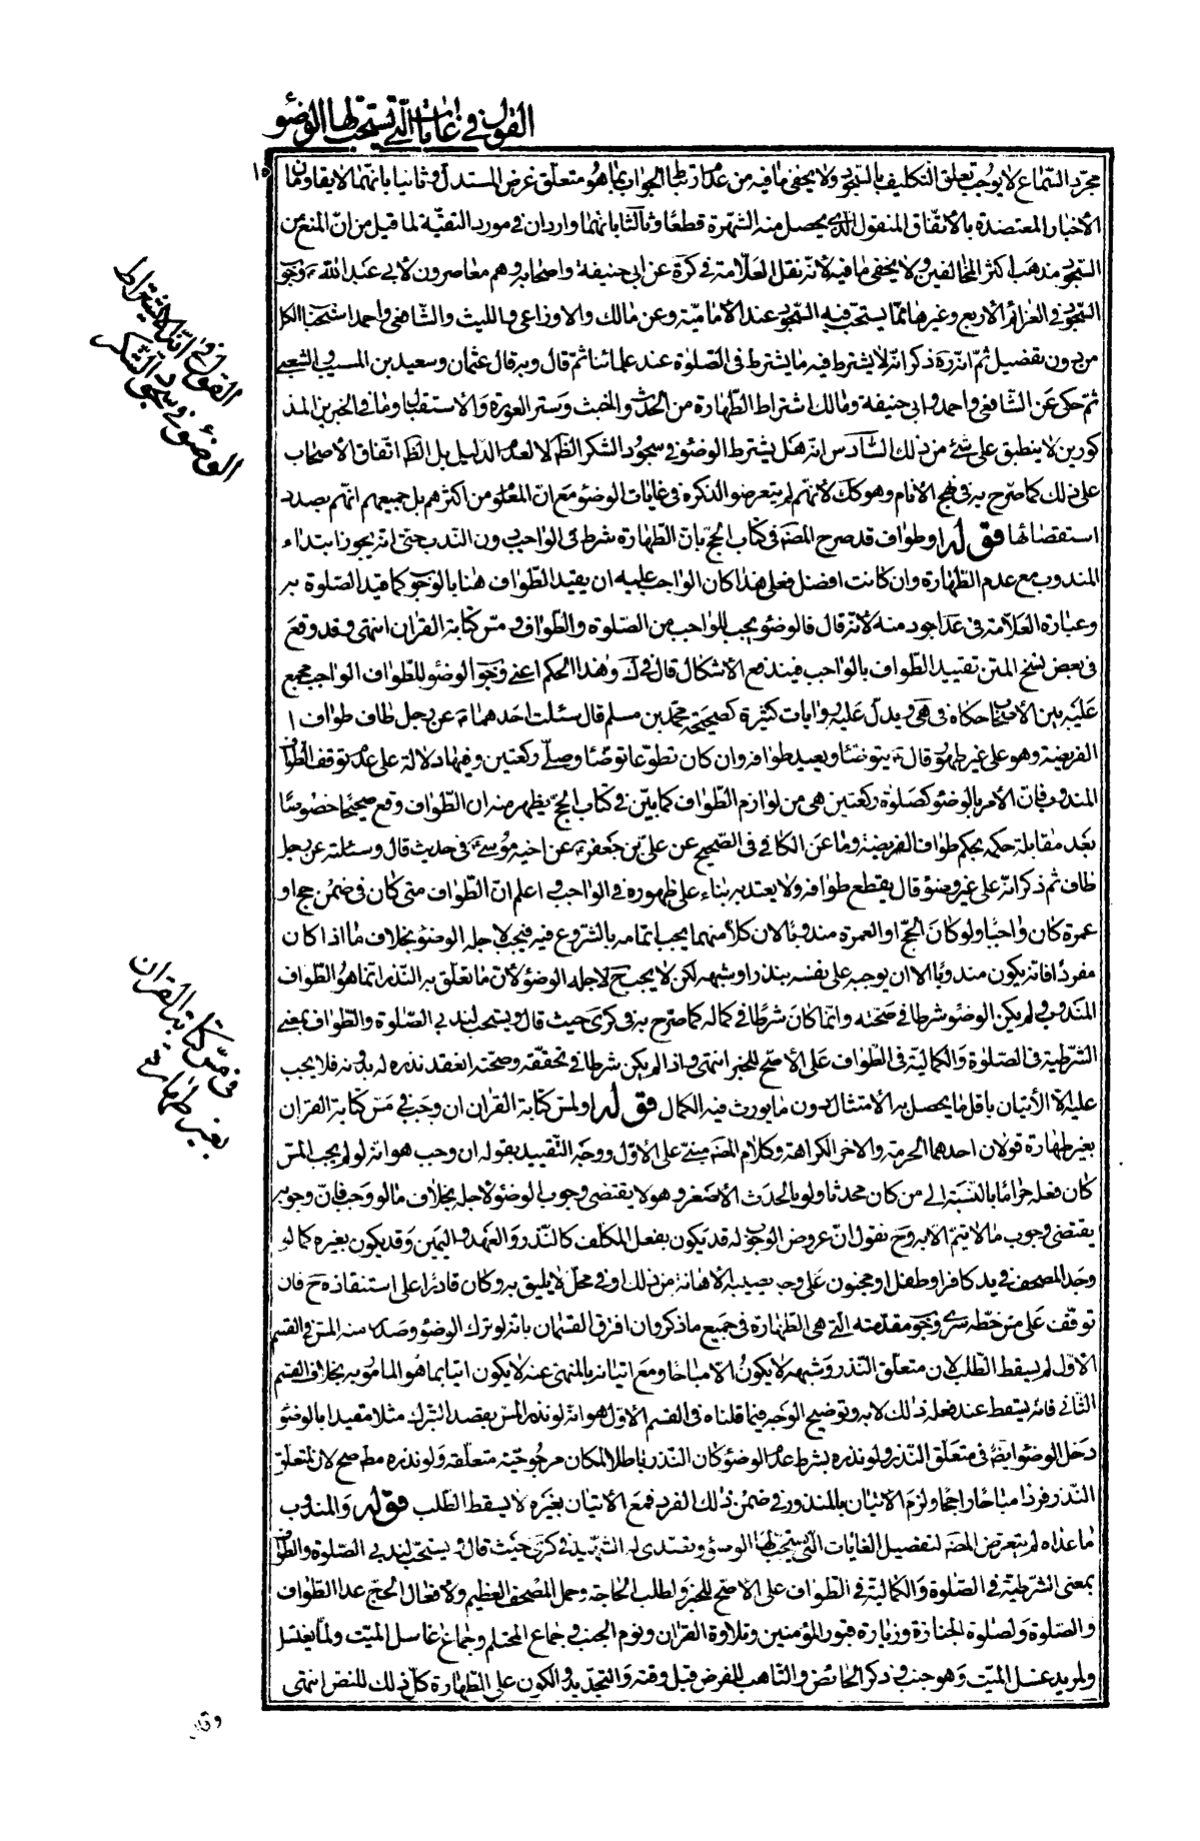 القول في غايات التي يستحب لها الوضوء
١٥
مجرد السماع لا يوجب تعلق التكليف بالسجود ولا يخفى ما فيه من عدم ارتباط الجواب بما هو متعلق غرض المستدل وثانيا بانهما لا يقاومان
الأخبار المعتضدة بالاتفاق المنقول الذى يحصل منه الشهرة قطعا وثالثا بانهما واردان في مورد التقية لما قيل من ان المنع من
السجود مذهب اكثر المخالفين ولا يخفى ما فيه لانه نقل العلامة في كرة عن ابى حنيفة واصحابه وهم معاصرون لأبي عبد الله ع وجوب
السجود في العزائم الأربع وغيرها مما يستحب فيه السجود عند الأمامية وعن مالك والاوزاعى والليث والشافعى واحمد استحباب الكل
من دون تفضيل ثم انه ره ذكر انه لا يشترط فيه ما يشترط فى الصلوة عند علمائنا ثم قال وبه قال عثمان وسعيد بن المسيب والشعبى
ثم حكى عن الشافعى واحمد وابى حنيفة ومالك اشتراط الطهارة من الحدث والخبث وستر العورة والاستقبال وما في الخبرين المذ
كورين لا ينطبق على شئ من ذلك السادس انه هل يشترط الوضوء في سجود الشكر الظ لا لعدم الدليل بل الظ اتفاق الأصحاب
على ذلك كما صرح به في نهج الأنام وهو كك لأنهم لم يتعرضو الذكره في غايات الوضوء مع ان المعلوم من اكثرهم بل جميعهم انهم بصدد
استقصائها قوله او طواف قد صرح المصنف في كتاب الحج بان الطهارة شرط في الواجب دون الندب حتى انه يجوز ابتداء
المندوب مع عدم الطهارة وان كانت افضل فعلى هذا كان الواجب عليه ان يقيد الطواف هنا بالوجوب كما قيد الصلوة به
وعبارة العلامة في عد اجود منه لأنه قال فالوضوء يجب للواجب من الصلوة والطواف ومس كتابة القران انتهى وقد وقع
في بعض نسخ المتن تقييد الطواف بالواجب فيندفع الأشكال قال في ك وهذا الحكم اعنى وجوب الوضوء للطواف الواجب مجمع
عليه بين الأصحاب حكاه في هى ويدل عليه روايات كثيرة كصحيحة محمد بن مسلم قال سئلت احدهما ع عن رجل طاف طواف ا
الفريضة وهو على غير طهور قال ع يتوضئا ويعيد طوافه وان كان تطوعا توضئا وصلى ركعتين وفيها دلالة على عدم توقف الطواف
المندوب فان الأمر بالوضوء كصلوة ركعتين هى من لوازم الطواف كما بين في كتاب الحج يظهر منه ان الطواف وقع صحيحا خصوصا
بعد مقابلة حكمه بحكم طواف الفريضة وما عن الكافي في الصحيح عن على بن جعفر ع عن اخيه موسى ع في حديث قال وسئلته عن رجل
طاف ثم ذكر انه على غير وضوء قال يقطع طوافه ولا يعتد به بناء على ظهوره في الواجب واعلم ان الطواف متى كان في ضمن حج او
عمرة كان واجبا ولو كان الحج او العمرة مندوبا لان كلا منهما يجب اتمامه بالشروع فيه فيجب لاجله الوضوء بخلاف ما اذا كان
مفردا فانه يكون مندوبا الا ان يوجبه على نفسه بنذر او شبهه لكن لا يجب ح لاجله الوضوء لان ما تعلق به النذر انما هو الطواف
المندوب ولم يكن الوضوء شرطا في صحته وانما كان شرطا في كماله كما صرح به في كرى حيث قال ويستحب لندبى الصلوة والطواف بمعنى
الشرطية في الصلوة والكمالية في الطواف على الأصح للخبر انتهى واذا لم يكن شرطا في تحققه وصحته انعقد نذره له بدونه فلا يجب
عليه الا الأتيان باقل ما يحصل به الأمتثال دون ما يورث فيه الكمال قوله او لمس كتابة القران ان وجب في مس كتابة القران
بغير طهارة قولان احدهما الحرمة والاخر الكراهة وكلام المصنف مبنى على الأول ووجه التقييد بقوله ان وجب هو انه لو لم يجب المس
كان فعله حراما بالنسبة الى من كان محدثا ولو بالحدث الأصغر وهو لا يقتضى وجوب الوضوء لاجله بخلاف ما لو وجب فان وجوبه
يقتضى وجوب ما لا يتم الا به وح نقول ان عروض الوجوب له قد يكون بفعل المكلف كالنذر والعهد واليمين وقد يكون بغيره كما لو
وجد المصحف في يد كافر او طفل او مجنون على وجه يصيبه الأهانة من ذلك او في محل لا يليق به وكان قادرا على استنقاذه ح فان
توقف على مس خطه سرى وجوب مقدمته التى هى الطهارة في جميع ما ذكر وان افترق القسمان بانه لو ترك الوضوء وصدر منه المس في القسم
الأول لم يسقط الطلب لان متعلق النذر وشبهه لا يكون الا مباحا ومع اتيانه بالمنهى عنه لا يكون اتيا بما هو المامور به بخلاف القسم
الثانى فانه يسقط عند فعله ذلك لا به وتوضيح الوجه فيما قلناه في القسم الاول هو انه لو نذر المس بقصد التبرك مثلا مقيدا بالوضوء
دخل الوضوء ايضا في متعلق النذر ولو نذره بشرط عدم الوضوء كان النذر باطلا لمكان مرجوحية متعلقه ولو نذره مط صح لان لمتعلق
النذر فردا مباحا راجحا ولزم الاتيان بالمنذور في ضمن ذلك الفرد فمع الأتيان بغيره لا يسقط الطلب قوله والمندوب
ما عداه لم يتعرض المصنف لتفصيل الغايات التى يستحب لها الوضوء وتصدى له الشهيد في كرى حيث قال ويستحب لندبى الصلوة والطواف
بمعنى الشرطية في الصلوة والكمالية في الطواف على الأصح للخبر ولطلب الحاجة وحمل المصحف العظيم ولأفعال الحج عدا الطواف
والصلوة ولصلوة الجنازة وزيارة قبور المؤمنين وتلاوة القران ونوم الجنب وجماع المحتلم وجماع غاسل الميت ولما يغتسل
ولمريد غسل الميت وهو جنب وذكر الحائض والتاهب للفرض قبل وقته والتجديد والكون على الطهارة كل ذلك للنص انتهى
القول في اشتراط
الوضوء في سجود الشكر
في مس كتابة القران
بغير طهارة
وقال